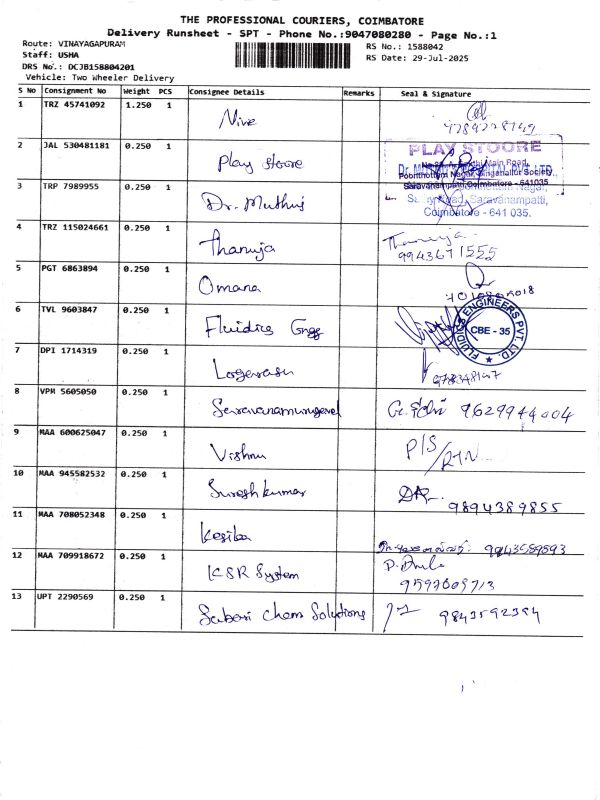 THE PROFESSIONAL COURIERS, COIMBATORE
Delivery Runsheet - SPT - Phone No.:9047080280 - Page No.:1
Route: VINAYAGAPURAM
RS No.: 1588042
Staff: USHA
RS Date: 29-Jul-2025
DRS No.: DCJB158804201
Vehicle: Two Wheeler Delivery
S No Consignment No Weight PCS Consignee Details Remarks Seal & Signature
1 TRZ 45741092 1.250 1 Nive
2 JAL 530481181 0.250 1 Play Stoore PLAY STOORE
Poonthottam Nagar, Singanallur Society,
Saravanampatti, Coimbatore - 641035
3 TRP 7989955 0.250 1 Dr. Muthus
Saravanampatti,
Coimbatore - 641 035.
4 TRZ 115024661 0.250 1 Thanuja Thanuja
9943671555
5 PGT 6863894 0.250 1 Omana
6 TVL 9603847 0.250 1 Fluidics Engg FLUIDICS ENGINEERS PVT. LTD. CBE - 35
7 DPI 1714319 0.250 1 Logavasu
8 VPM 5605050 0.250 1 Saravanamurugavel 9629944004
9 MAA 600625047 0.250 1 Vishnu P/S/RTN
10 MAA 945582532 0.250 1 Suresh kumar 9894389855
11 MAA 708052348 0.250 1 Kesiba
12 MAA 709918672 0.250 1 KSR System
9597009713
13 UPT 2290569 0.250 1 Sabari Chem Solutions 9843592394